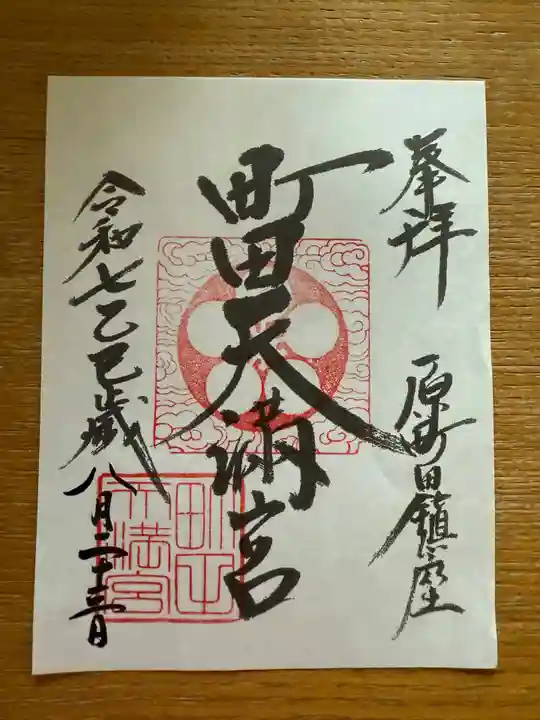 奉拝
原町田鎮座
町田天満宮
令和七乙巳歳八月二十三日
町田天満宮